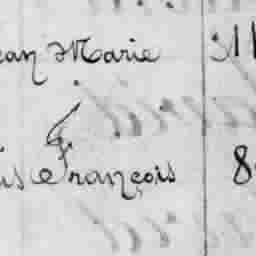 ean Marie 311
is François 8